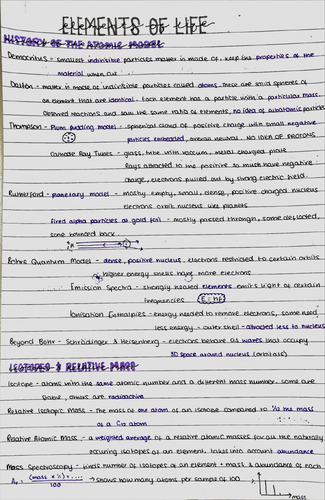 ELEMENTS OF LIFE
HISTORY OF THE ATOMIC MODEL
Democritus - smallest indivisible particles matter is made of, keep the properties of the
material when cut
Dalton - matter is made of indivisible particles called atoms. these are solid spheres of
an element that are identical. Each element has a particle with a particular mass.
observed reactions and saw the same ratio of elements, no idea of subatomic particles
Thompson - Plum pudding model - spherical cloud of positive charge with small negative
particles embedded, overall neutral. NO IDEA OF PROTONS
Cathode Ray Tubes - glass tube with vacuum, metal charged plate
Rays attracted to the positive so must have negative
charge, electrons pulled out by strong electric field.
Rutherford - planetary model - mostly empty, small, dense, positive charged nucleus
electrons orbit nucleus like planets
fired alpha particles at gold foil - mostly passed through, some deflected,
some bounced back
Bohrs Quantum Model - dense, positive nucleus, electrons restricted to certain orbits
higher energy shells have more electrons
Emission Spectra - strongly heated elements emit light of certain
frequencies E=hf
Ionisation Enthalpies - energy needed to remove electrons, some need
less energy - outer shell - attracted less to nucleus
Beyond Bohr - Schrödinger & Heisenberg - electrons behave as waves that occupy
3D space around nucleus (orbitals)
ISOTOPES & RELATIVE MASS
Isotope - atoms with the same atomic number and a different mass number. some are
stable, others are radioactive
Relative Isotopic Mass - the mass of the atom of an isotope compared to 1/12 the mass
of a C12 atom
Relative Atomic Mass - a weighted average of a relative atomic masses for all the naturally
occuring isotopes of an element, takes into account abundance
Mass Spectroscopy - finds number of isotopes of an element + mass & abundance of each
Ar = (mass × %) + ... / 100 → shows how many atoms per sample of 100
mass